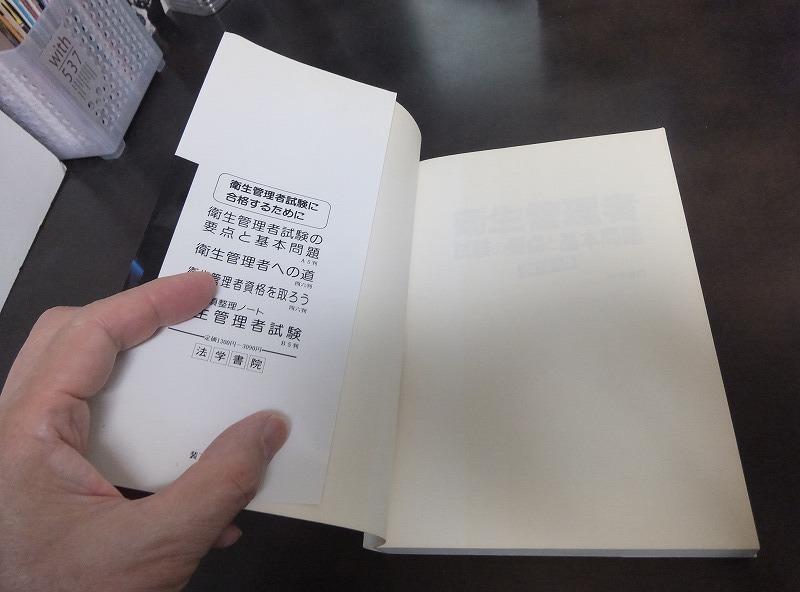 with
537
衛生管理者試験に
合格するために
衛生管理者試験の
要点と基本問題
A5判
衛生管理者への道
四六判
衛生管理者資格を取ろう
四六判
整理ノート
生管理者試験
B5判
定価1300円~3090円
法学書院
装